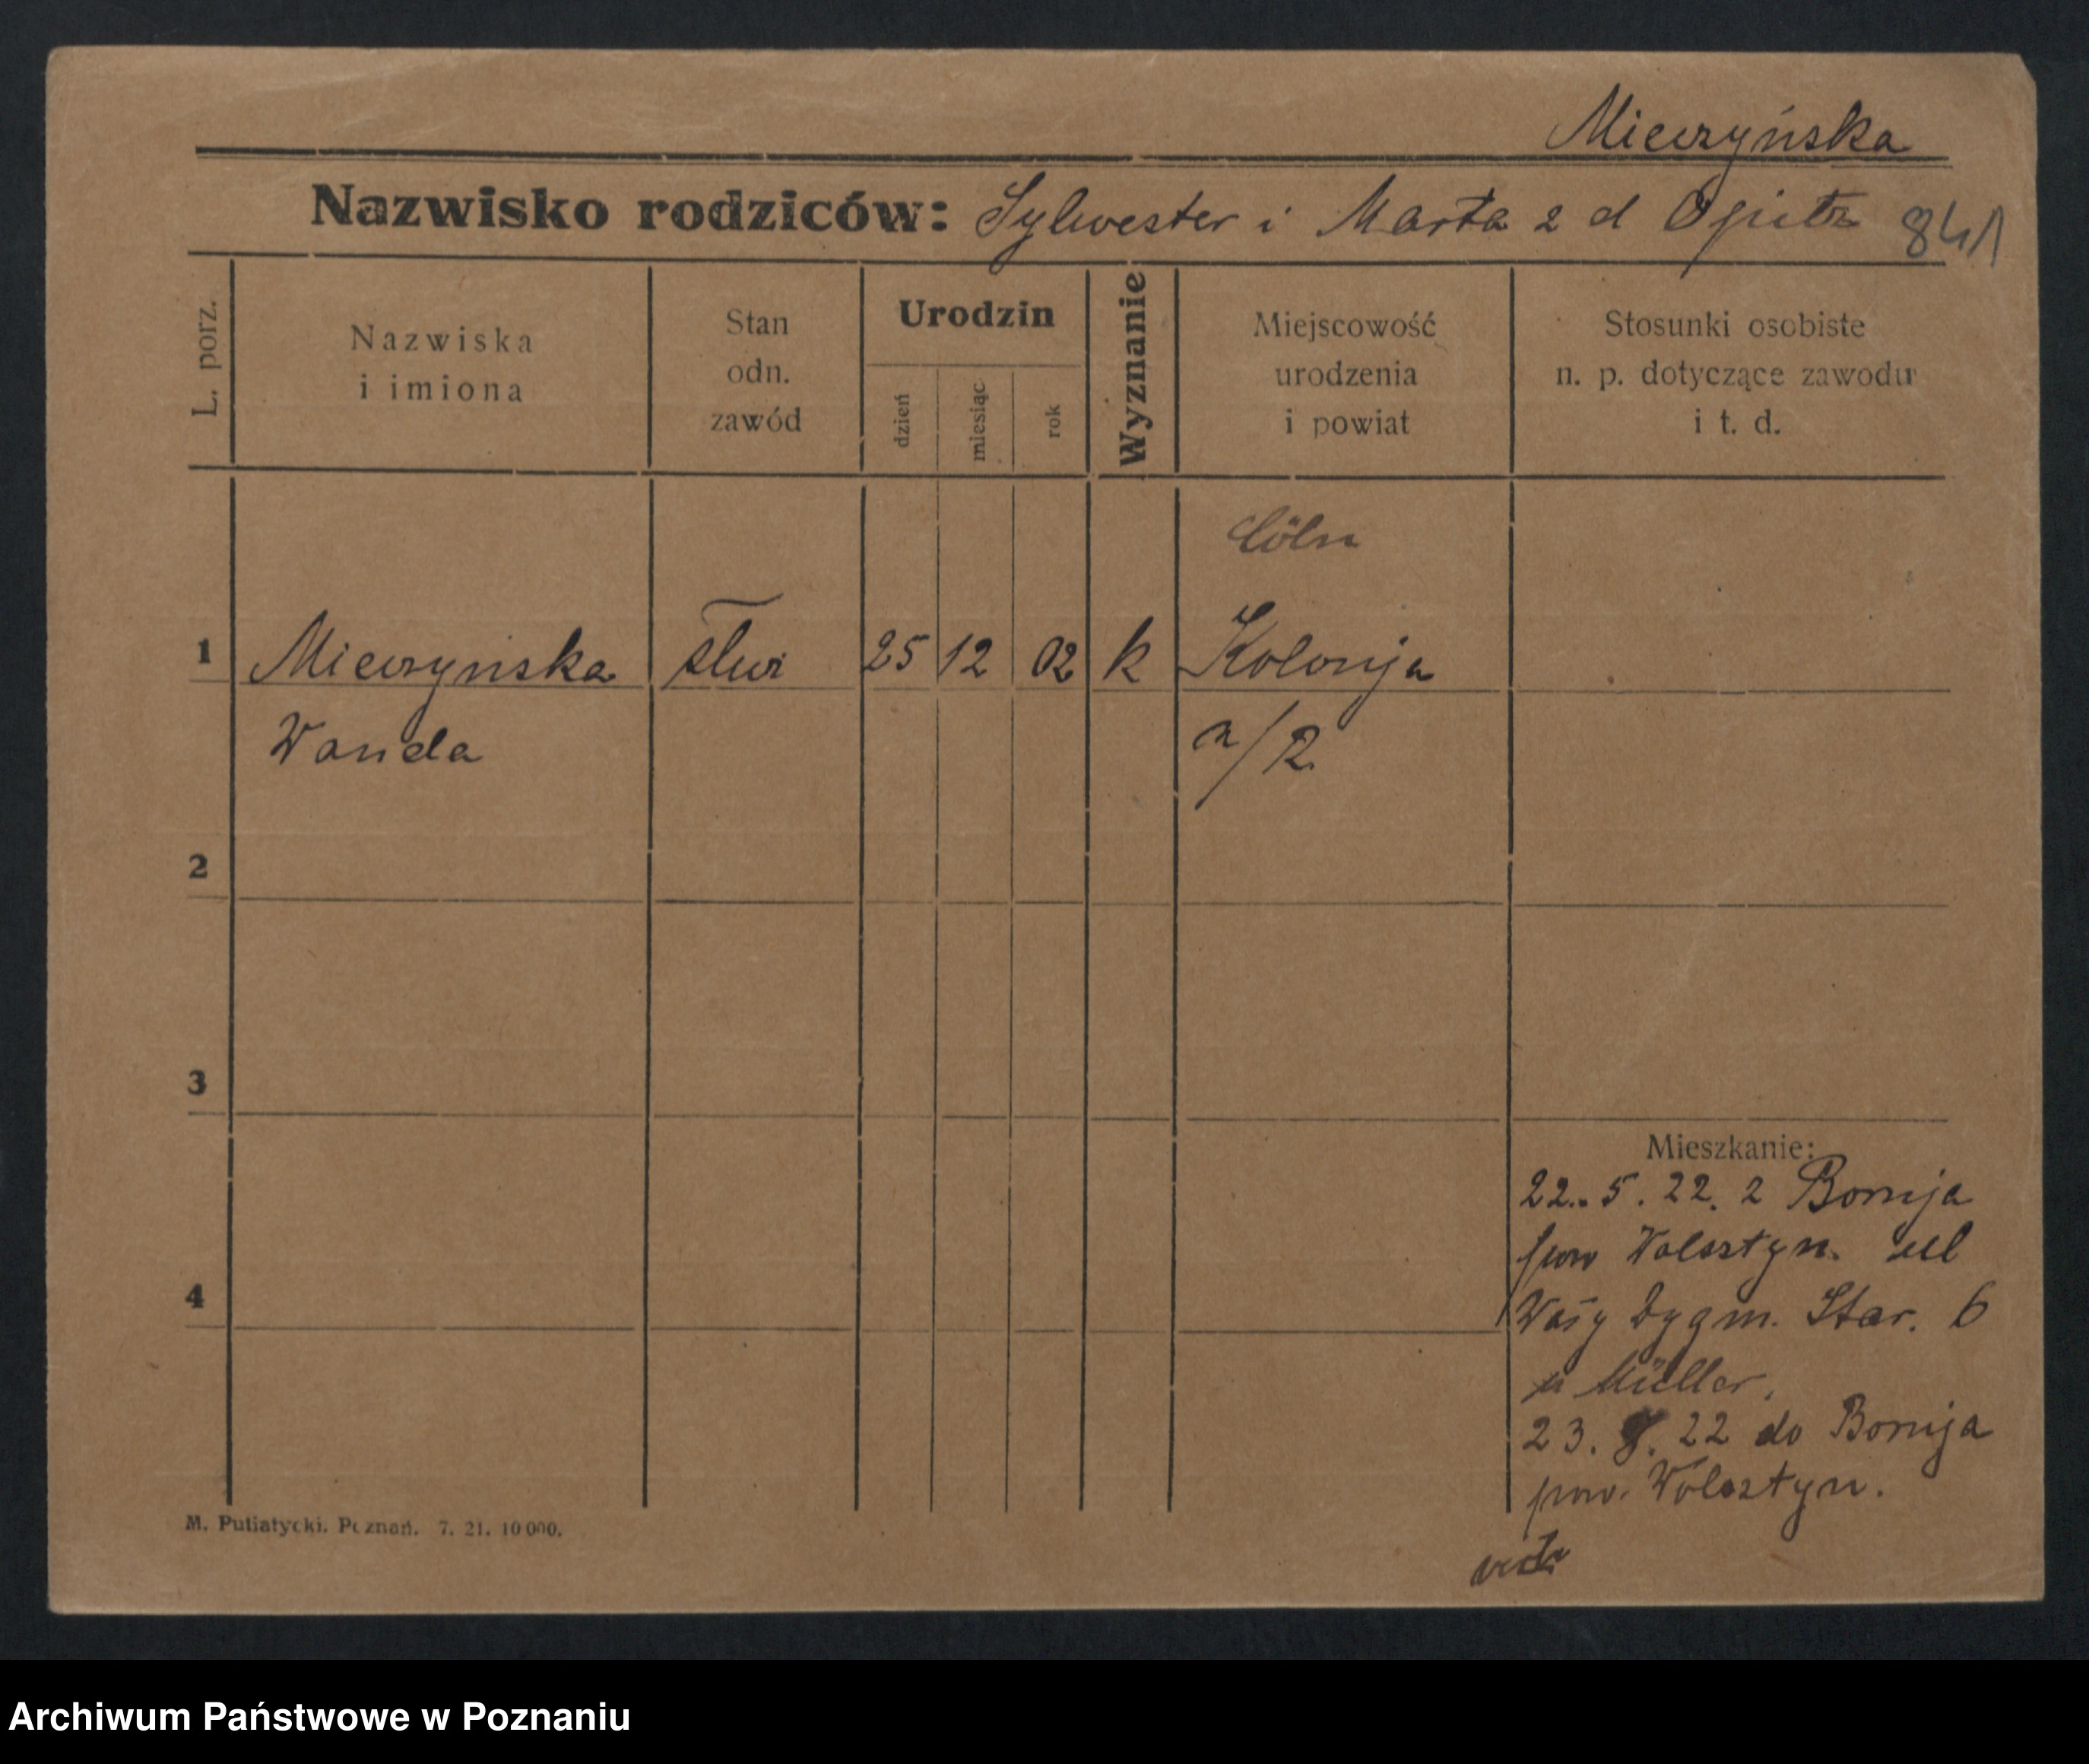 Mieczyńska
Nazwisko rodziców: Sylwester i Marta z d Opitz 841
L. porz.
Nazwiska
i imiona
Stan
odn.
zawód
Urodzin
dzień
miesiąc
rok
Wyznanie
Miejscowość
urodzenia
i powiat
Stosunki osobiste
n. p. dotyczące zawodu
i t. d.
Cöln
1 Mieczyńska 25 12 02 k Kolonja
Wanda n/R.
2
3
Mieszkanie:
22. 5. 22. z Bomja
pow Wolsztyn. ul
4
Wały Zygm. Star. 6
u Müller,
23. 8. 22 do Bomja
pow. Wolsztyn.
M. Putiatycki. Poznań. 7. 21. 10 000.
Archiwum Państwowe w Poznaniu